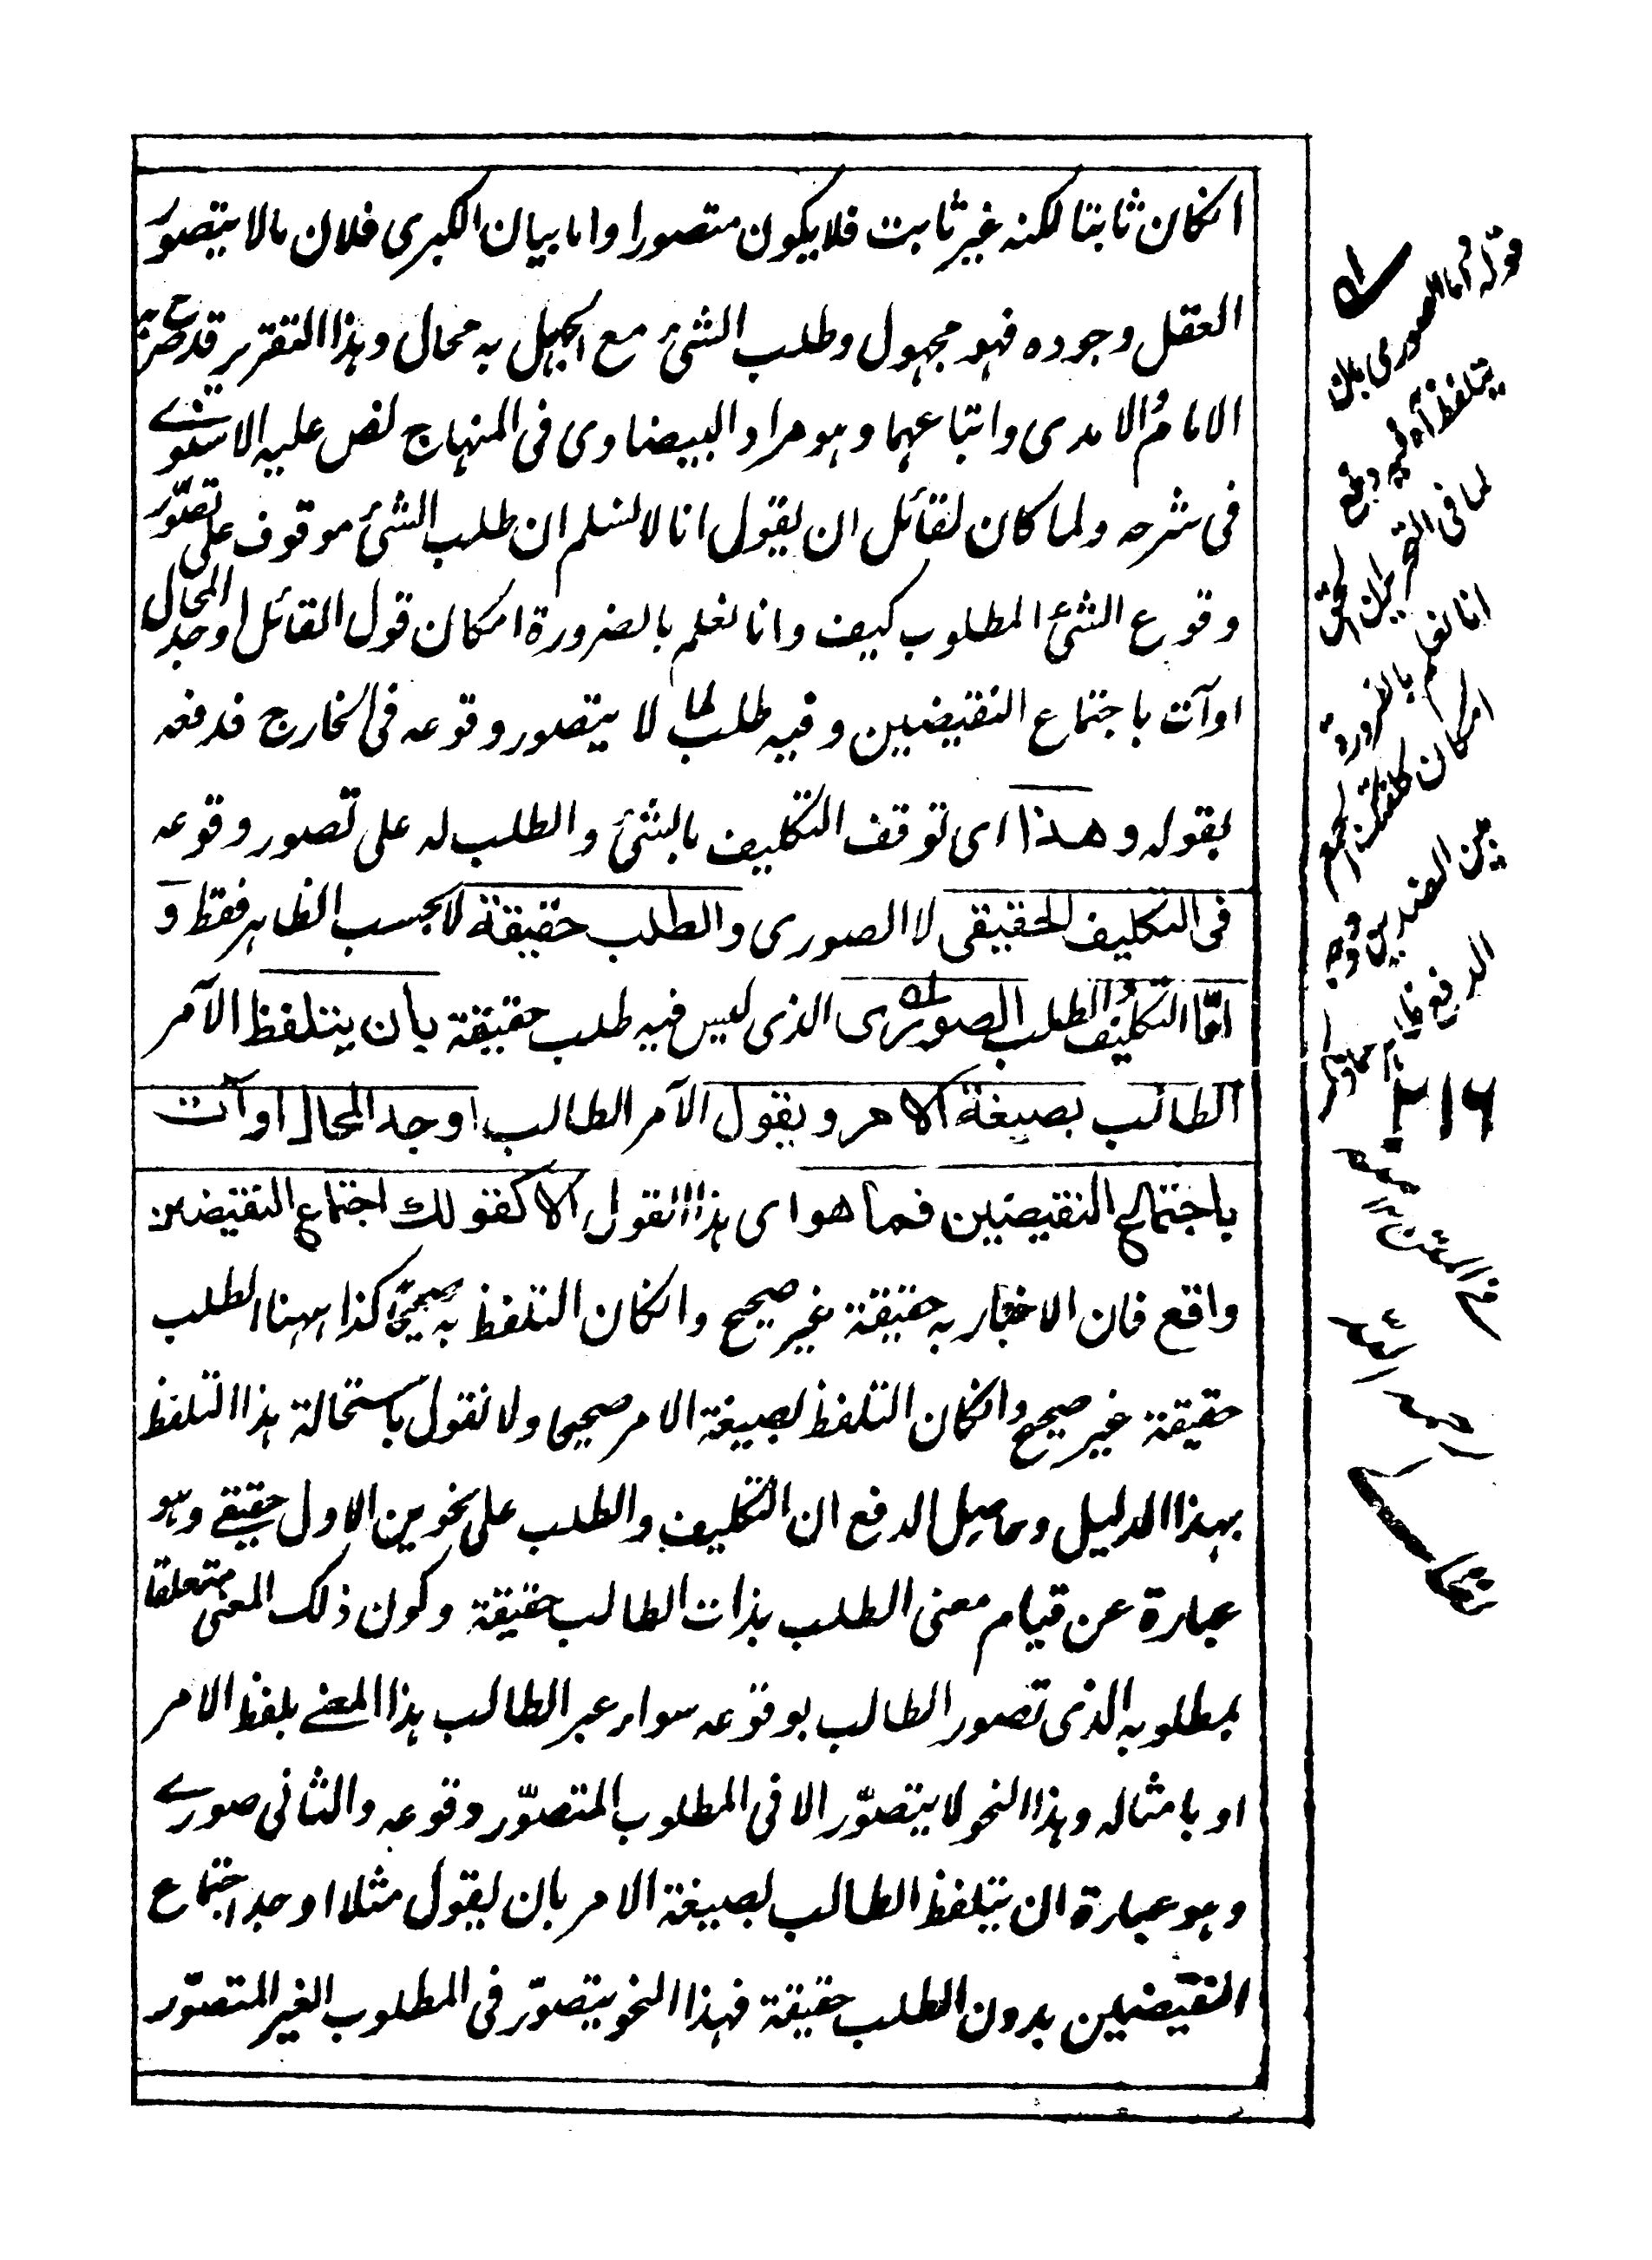 انكان ثابتا لكنه غير ثابت فلا يكون متصورا واما بيان الكبرى فلان مالا يتصور
العقل وجوده فهو مجهول وطلب الشئ مع الجهل به محال وهذا التقرير قد صرح به
الامام الامدى واتباعهما وهو مراد البيضاوى فى المنهاج نص عليه الاسنوے
فى شرحه ولما كان لقائل ان يقول انا لا نسلم ان طلب الشئ موقوف على تصور
وقوع الشئ المطلوب كيف وانا نعلم بالضرورة امكان قول القائل اوجد المحال
اوآت باجتماع النقيضين وفيه طلب لما لا يتصور وقوعه فى الخارج فدفعه
بقوله وهذا اى توقف التكليف بالشئ والطلب له على تصور وقوعه
فى التكليف الحقيقى لا الصورى والطلب حقيقة لا بحسب الظاهر فقط و
امّا التكليف والطلب الصورى الذى ليس فيه طلب حقيقة بان يتلفظ الآمر
الطالب بصيغة الامر ويقول الآمر الطالب اوجد المحال اوآت
باجتماع النقيضين فما هو اى هذا القول الا كقولك اجتماع النقيضين
واقع فان الاخبار به حقيقة غير صحيح وانكان التلفظ به صحيحا كذا ههنا الطلب
حقيقة غير صحيح وانكان التلفظ بصيغة الامر صحيحا ولا نقول باستحالة هذا التلفظ
بهذا الدليل وحاصل الدفع ان التكليف والطلب على نحوين الاول حقيقے وهو
عبارة عن قيام معنى الطلب بذات الطالب حقيقة وكون ذلك المعنى متعلقا
بمطلوبه الذى تصور الطالب بوقوعه سواء عبر الطالب هذا المعنے بلفظ الامر
او بامثاله وهذا النحو لا يتصوّر الا فى المطلوب المتصوّر وقوعه والثانى صورے
وهو عبارة ان يتلفظ الطالب بصيغة الامر بان يقول مثلا اوجد اجتماع
النقيضين بدون الطلب حقيقة فهذا النحو يتصوّر فى المطلوب الغير المتصوّر
قوله اما الصورى بان
يتلفظ آه
لما فى
انا نعلم بالضرورة
امكان كلفتك الجمع
بين الضدين ووجه
الدفع